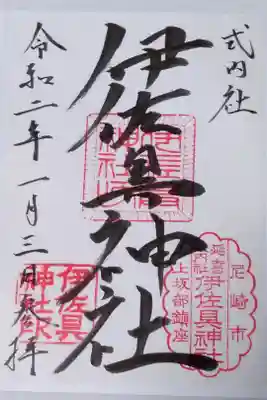 式内社
伊佐具神社
令和二年一月三日奉拝
尼崎市
延喜式内社
伊佐具神社
上坂部鎮座
伊佐具
神社印